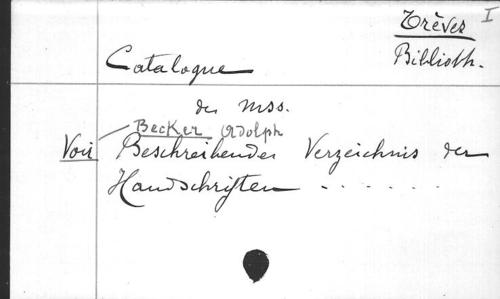 Trèves I
Biblioth.
Catalogue
des mss.
Becker Adolph
Voir Beschreibendes Verzeichnis der
Handschriften . . . . . .